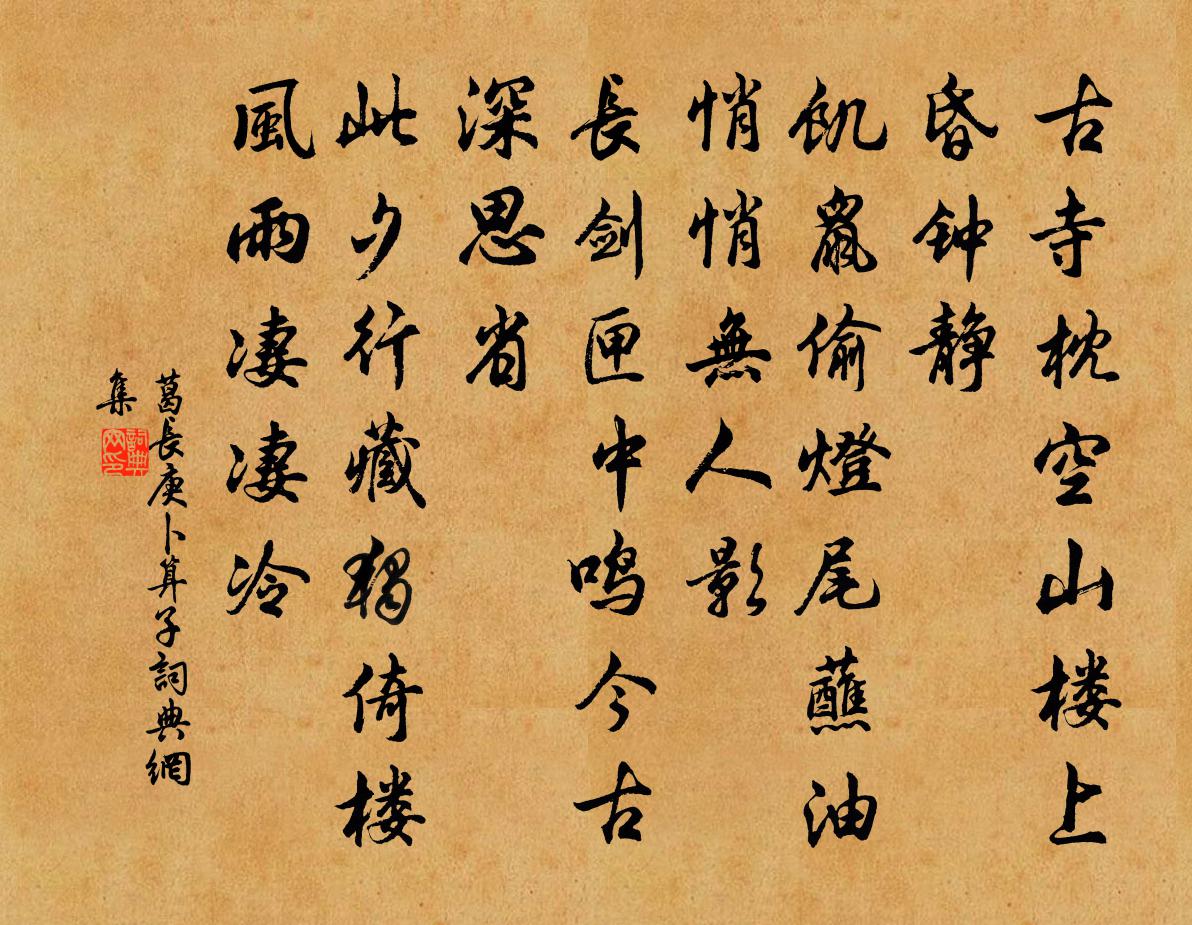 古寺枕空山楼上
昏钟静
飢鼠偷燈尾蘸油
悄悄無人影
長劍匣中鸣今古
深思省
此夕行藏獨倚楼
風雨凄凄冷
葛長庚卜算子詞典網
集
詞典
网印